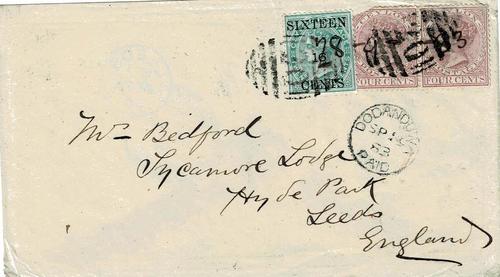 SIXTEEN
CENTS
FOUR CENTS
FOUR CENTS
DODANDUWA
PAID
Mrs Bedford
Sycamore Lodge
Hyde Park
Leeds
England